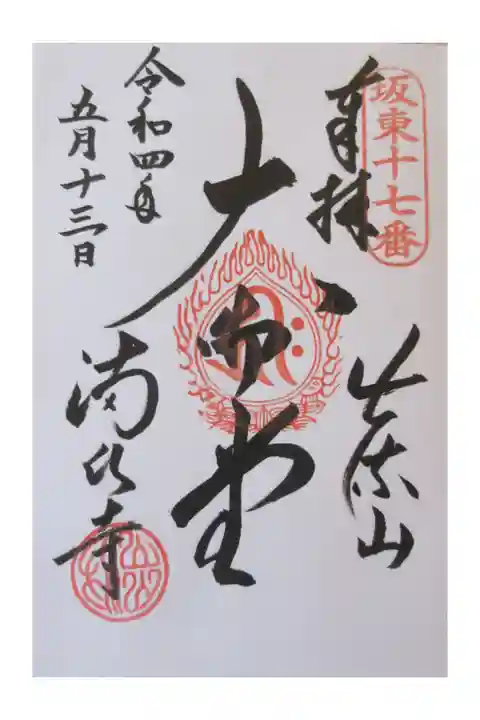 坂東十七番
奉拝
出流山
大御堂
令和四年
五月十三日
満願寺